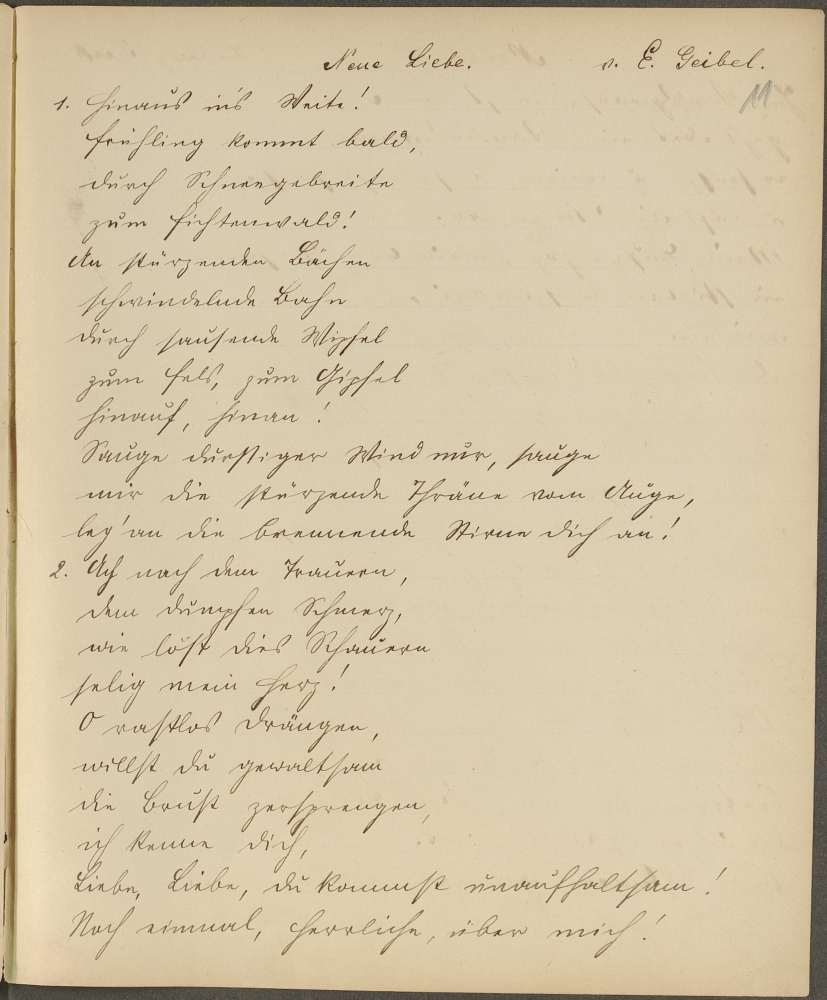 Neue Liebe. v. E. Geibel.
11
1. Hinaus in's Weite!
Frühling kommt bald,
durch Schneegebreite
zum Fichtenwald!
An stürzenden Bächen
schwindelnde Bahn
durch sausende Wipfel
zum Fels, zum Gipfel
hinauf, hinan!
Sauge durstiger Wind nur, sauge
mir die stürzende Thräne vom Auge,
leg' an die brennende Stirne dich an!
2. Ach nach dem Trauern,
dem dumpfen Schmerz,
wie löst dies Schauern
selig mein Herz!
O rastlos Drängen,
willst du gewaltsam
die Brust zersprengen,
ich kenne dich,
Liebe, Liebe, du kommst unaufhaltsam!
Noch einmal, herrliche, über mich!